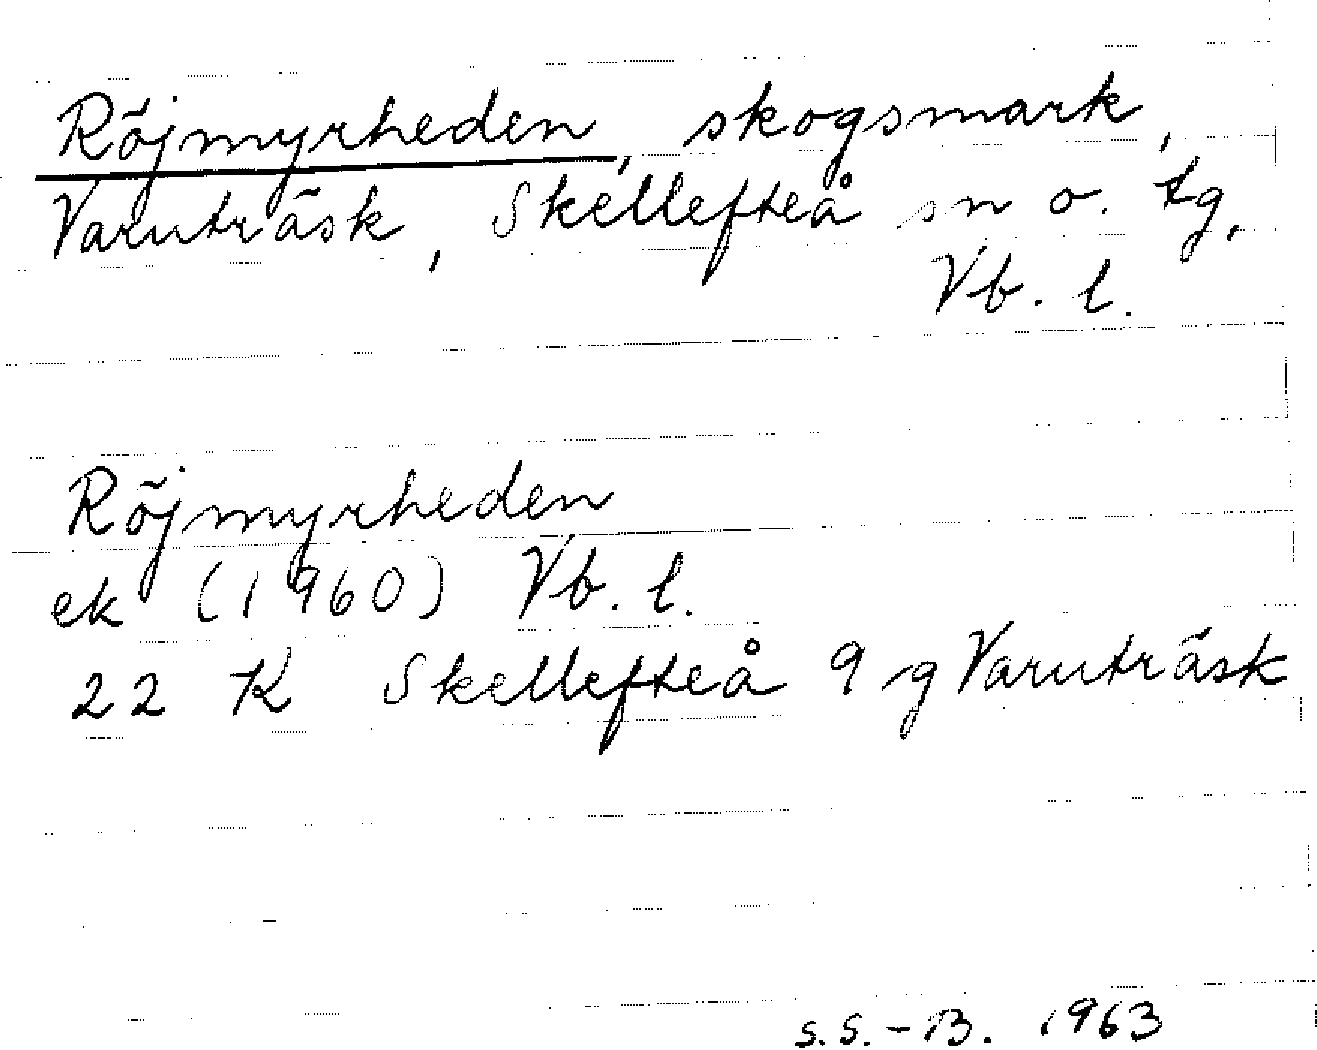 Röjmyrheden, skogsmark,
Varuträsk, Skellefteå sn o. tg,
Vb. l.
Röjmyrheden
ek (1960) Vb. l.
22 K Skellefteå 9 g Varuträsk
S.S.-B. 1963